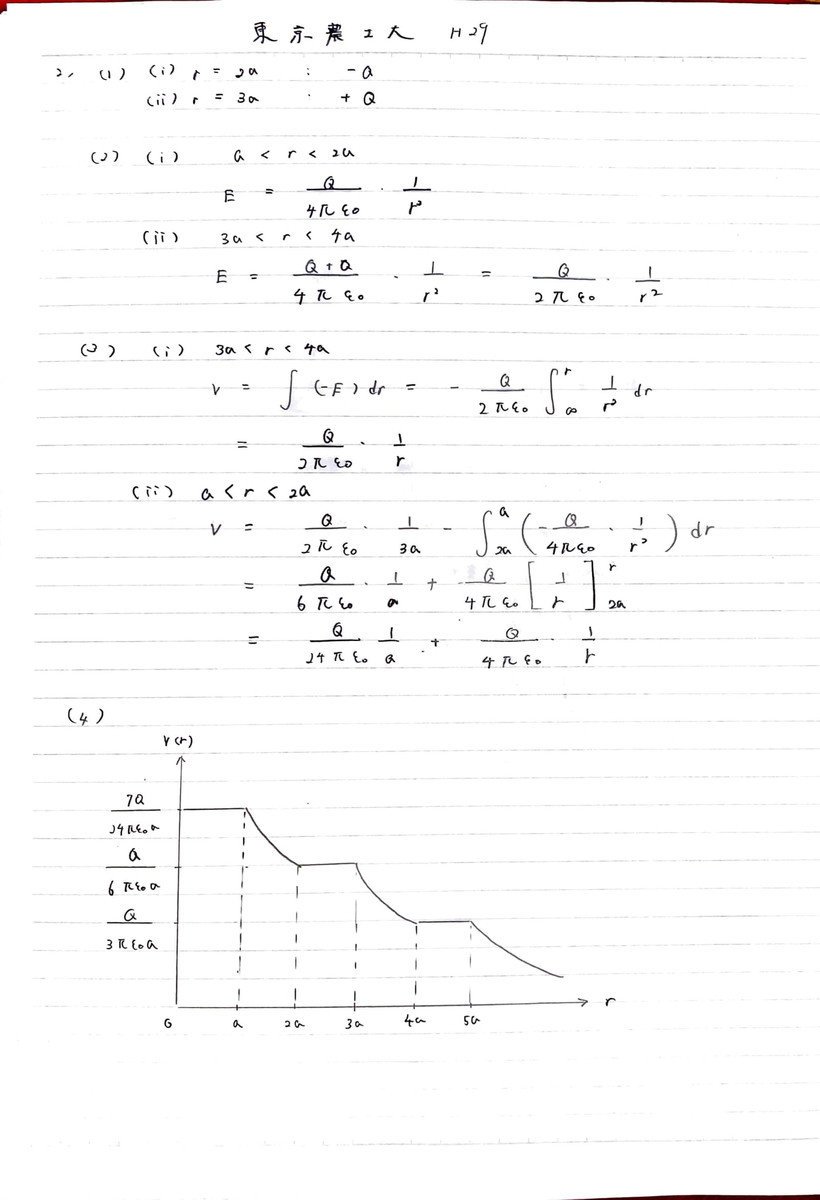 東京農工大 H29
2, (1) (i) r = 2a : -Q
(ii) r = 3a : + Q
(2) (i) a < r < 2a
E = Q/4πε0 · 1/r²
(ii) 3a < r < 4a
E = Q+Q/4πε0 · 1/r² = Q/2πε0 · 1/r²
(3) (i) 3a < r < 4a
V = ∫(-E)dr = - Q/2πε0 ∫_∞^r 1/r² dr
= Q/2πε0 · 1/r
(ii) a < r < 2a
V = Q/2πε0 · 1/3a - ∫_2a^a (-Q/4πε0 · 1/r²) dr
= Q/6πε0 · 1/a + Q/4πε0 [1/r]_2a^r
= Q/24πε0 1/a + Q/4πε0 · 1/r
(4)
V(r)
7Q/24πε0a
Q/6πε0a
Q/3πε0a
0 a 2a 3a 4a 5a r